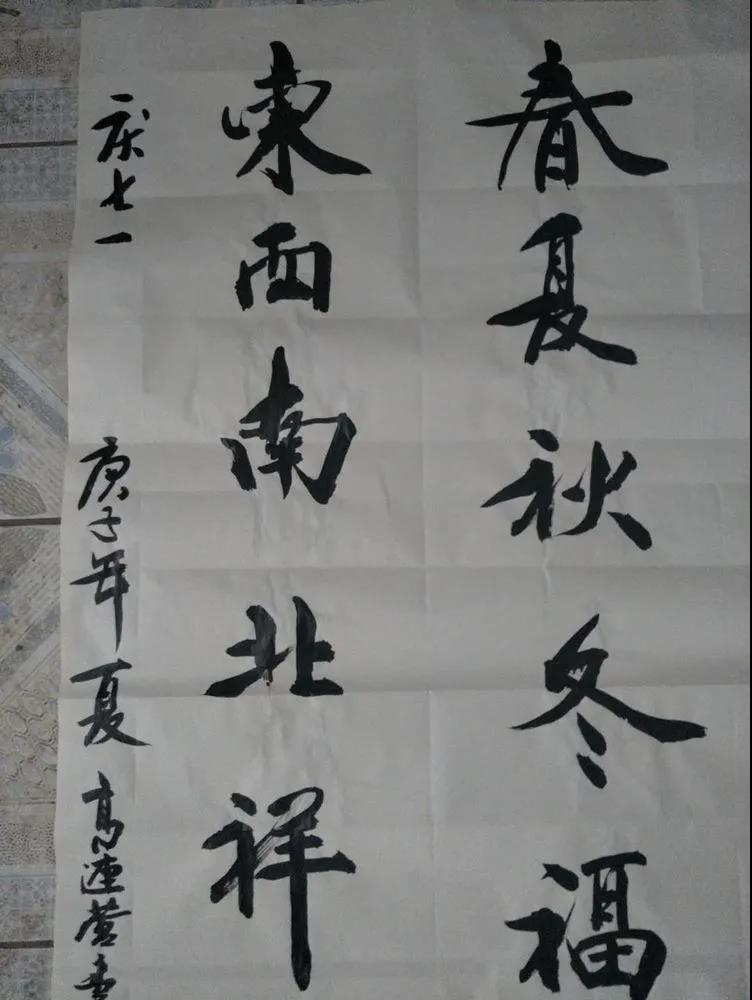 春夏秋冬福
东西南北祥
庆七一
庚子年夏 高连营书